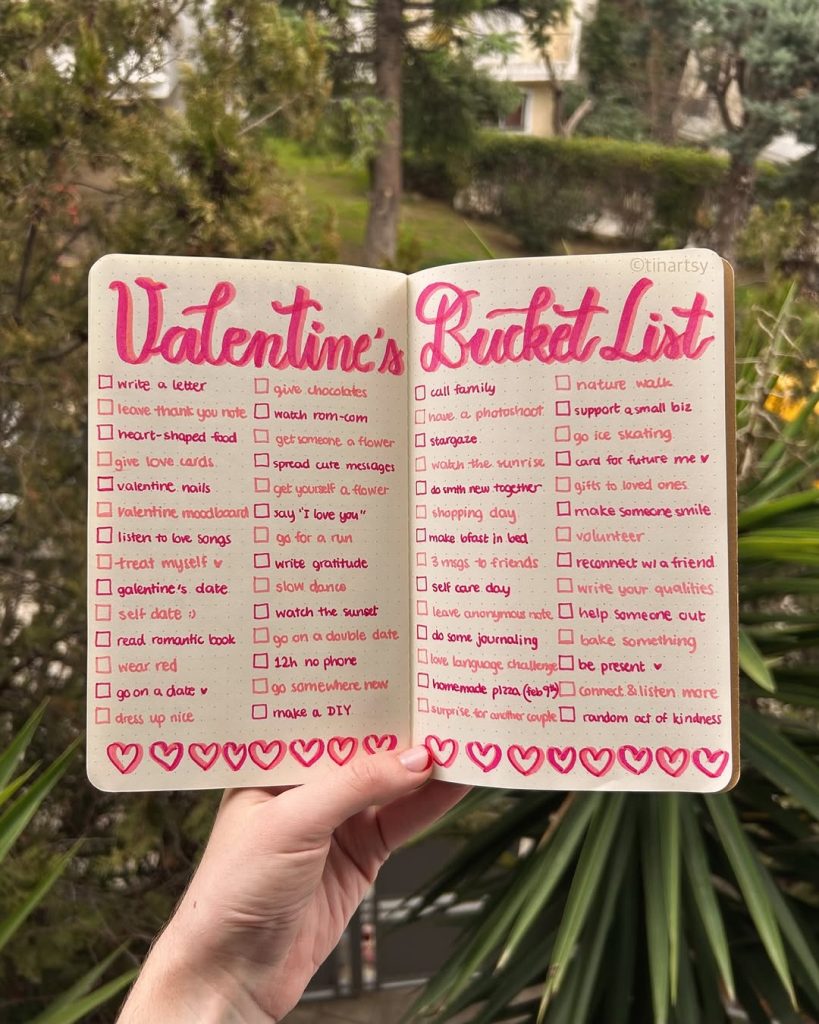 ©tinartsy
Valentine's Bucket List
write a letter
leave thank you note
heart-shaped food
give love cards
valentine nails
valentine moodboard
listen to love songs
treat myself ♥
galentine's date
self date :)
read romantic book
wear red
go on a date ♥
dress up nice
give chocolates
watch rom-com
get someone a flower
spread cute messages
get yourself a flower
say "I love you"
go for a run
write gratitude
slow dance
watch the sunset
go on a double date
12h no phone
go somewhere new
make a DIY
call family
have a photoshoot
stargaze
watch the sunrise
do smth new together
shopping day
make bfast in bed
3 msgs to friends
self care day
leave anonymous note
do some journaling
love language challenge
homemade pizza (feb 9th)
surprise for another couple
nature walk
support a small biz
go ice skating
card for future me ♥
gifts to loved ones
make someone smile
volunteer
reconnect w/ a friend
write your qualities
help someone out
bake something
be present ♥
connect & listen more
random act of kindness